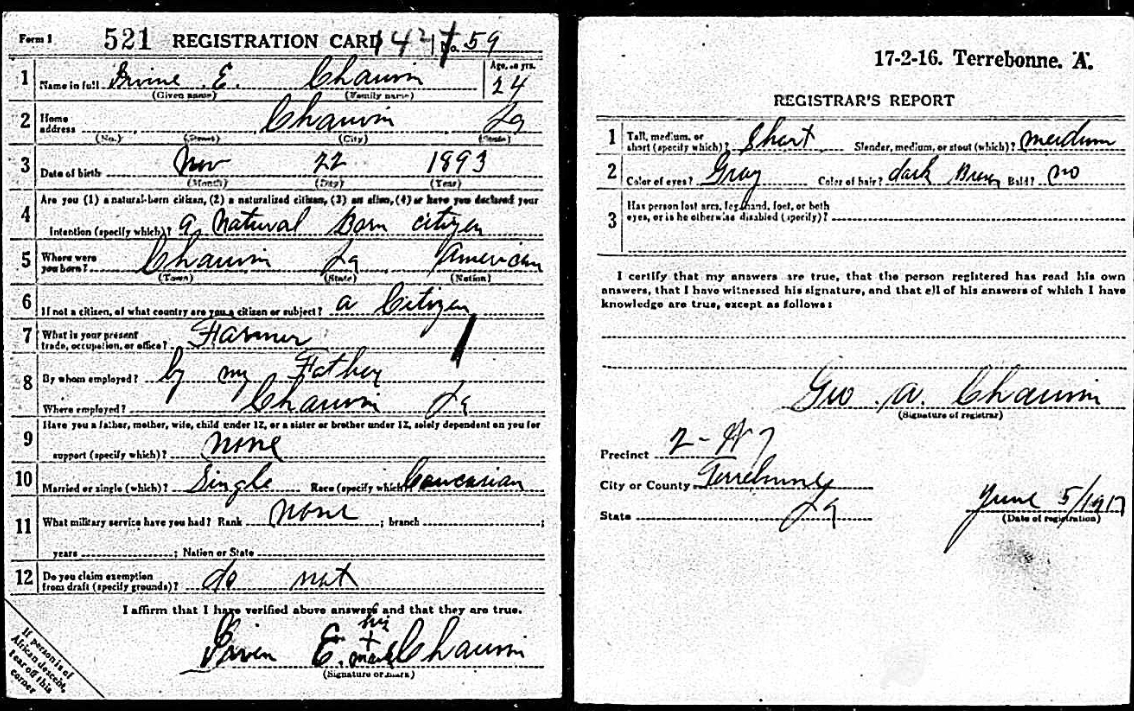 Form 1 521 REGISTRATION CARD No. 59
1 Name in full Irvine E. Chauvin Age, in yrs. 24
(Given name) (Family name)
2 Home address Chauvin La
(No.) (Street) (City) (State)
3 Date of birth Nov 22 1893
(Month) (Day) (Year)
4 Are you (1) a natural-born citizen, (2) a naturalized citizen, (3) an alien, (4) or have you declared your
intention (specify which)? a Natural Born citizen
5 Where were you born? Chauvin La American
(Town) (State) (Nation)
6 If not a citizen, of what country are you a citizen or subject? a Citizen
7 What is your present trade, occupation, or office? Farmer
8 By whom employed? by my Father
Where employed? Chauvin La
9 Have you a father, mother, wife, child under 12, or a sister or brother under 12, solely dependent on you for
support (specify which)? none
10 Married or single (which)? Single Race (specify which)? Caucasian
11 What military service have you had? Rank none ; branch ;
years ; Nation or State
12 Do you claim exemption from draft (specify grounds)? do not
I affirm that I have verified above answers and that they are true.
his
Irven E. + Chauvin
mark
(Signature or mark)
If person is of
African descent,
tear off this
corner
17-2-16. Terrebonne. A.
REGISTRAR'S REPORT
1 Tall, medium, or short (specify which)? Short Slender, medium, or stout (which)? meidum
2 Color of eyes? Gray Color of hair? dark Brown Bald? no
3 Has person lost arm, leg, hand, foot, or both
eyes, or is he otherwise disabled (specify)?
I certify that my answers are true, that the person registered has read his own
answers, that I have witnessed his signature, and that all of his answers of which I have
knowledge are true, except as follows:
Geo. A. Chauvin
(Signature of registrar)
Precinct 2-
City or County Terrebonne
State La
June 5/1917
(Date of registration)